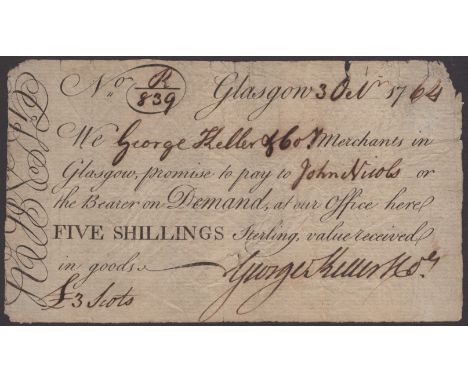 No R/839 Glasgow 3 Octr 1764
We George Keller & Coy Merchants in
Glasgow, promise to pay to John Nicols or
the Bearer on Demand, at our Office here
FIVE SHILLINGS Sterling, value received
in goods George Keller & Coy
£3 Scots